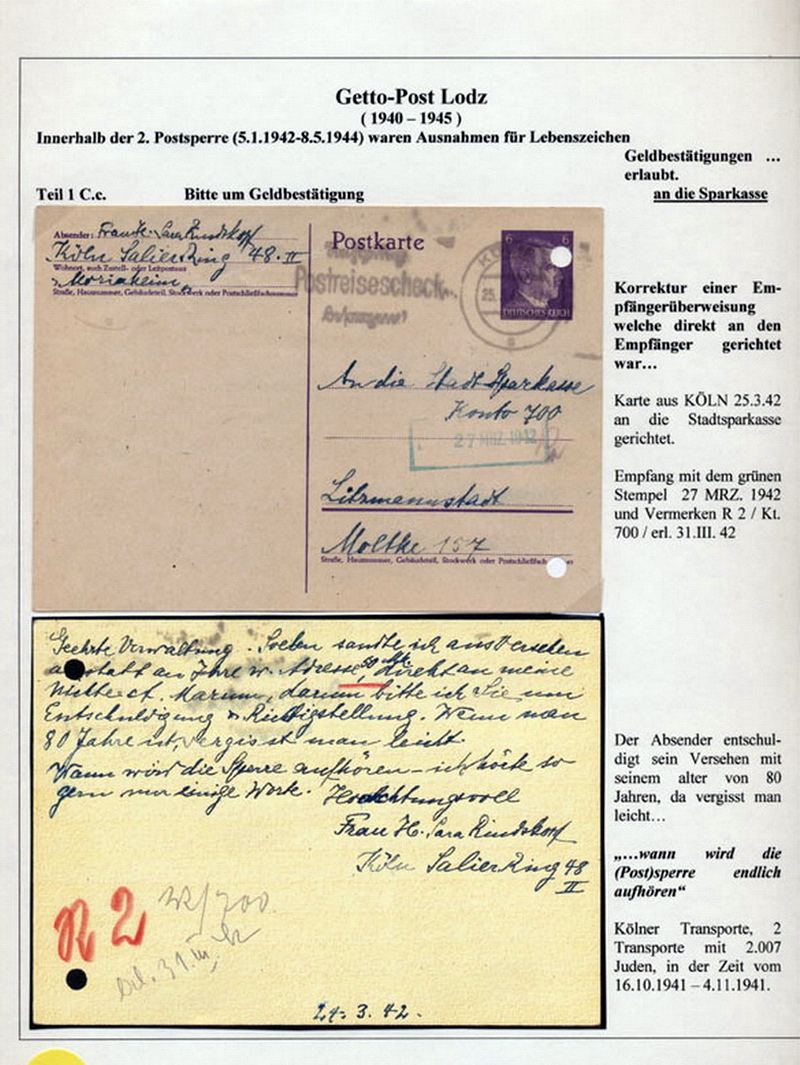 Getto-Post Lodz
( 1940 – 1945 )
Innerhalb der 2. Postsperre (5.1.1942-8.5.1944) waren Ausnahmen für Lebenszeichen
Geldbestätigungen …
erlaubt.
an die Sparkasse
Teil 1 C.c. Bitte um Geldbestätigung
Absender: Frau H. Sara Rindskopf
Köln SalierRing 48.II
Wohnort, auch Zustell- oder Leitpostamt
Straße, Hausnummer, Gebäudeteil, Stockwerk oder Postschließfachnummer
Postkarte
Postreisescheck
6 6
DEUTSCHES REICH
An die Stadt Sparkasse
Konto 700
27 MRZ. 1942
Litzmannstadt
Moltke 157
Straße, Hausnummer, Gebäudeteil, Stockwerk oder Postschließfach
Korrektur einer Em-
pfängerüberweisung
welche direkt an den
Empfänger gerichtet
war…
Karte aus KÖLN 25.3.42
an die Stadtsparkasse
gerichtet.
Empfang mit dem grünen
Stempel 27 MRZ. 1942
und Vermerken R 2 / Kt.
700 / erl. 31.III. 42
Geehrte Verwaltung. Soeben sandte ich aus Versehen
anstatt an Ihre w. Adresse, 50 Mk. direkt an meine
Nichte darum bitte ich Sie um
Entschuldigung & Richtigstellung. Wenn man
80 Jahre ist, vergisst man leicht.
Wann wird die Sperre aufhören – ich hörte so
gern nur einige Worte. Hochachtungsvoll
Frau H. Sara Rindskopf
Köln SalierRing 48
II
R 2
/700
erl. 31.III.
24. 3. 42.
Der Absender entschul-
digt sein Versehen mit
seinem alter von 80
Jahren, da vergisst man
leicht…
„…wann wird die
(Post)sperre endlich
aufhören“
Kölner Transporte, 2
Transporte mit 2.007
Juden, in der Zeit vom
16.10.1941 – 4.11.1941.